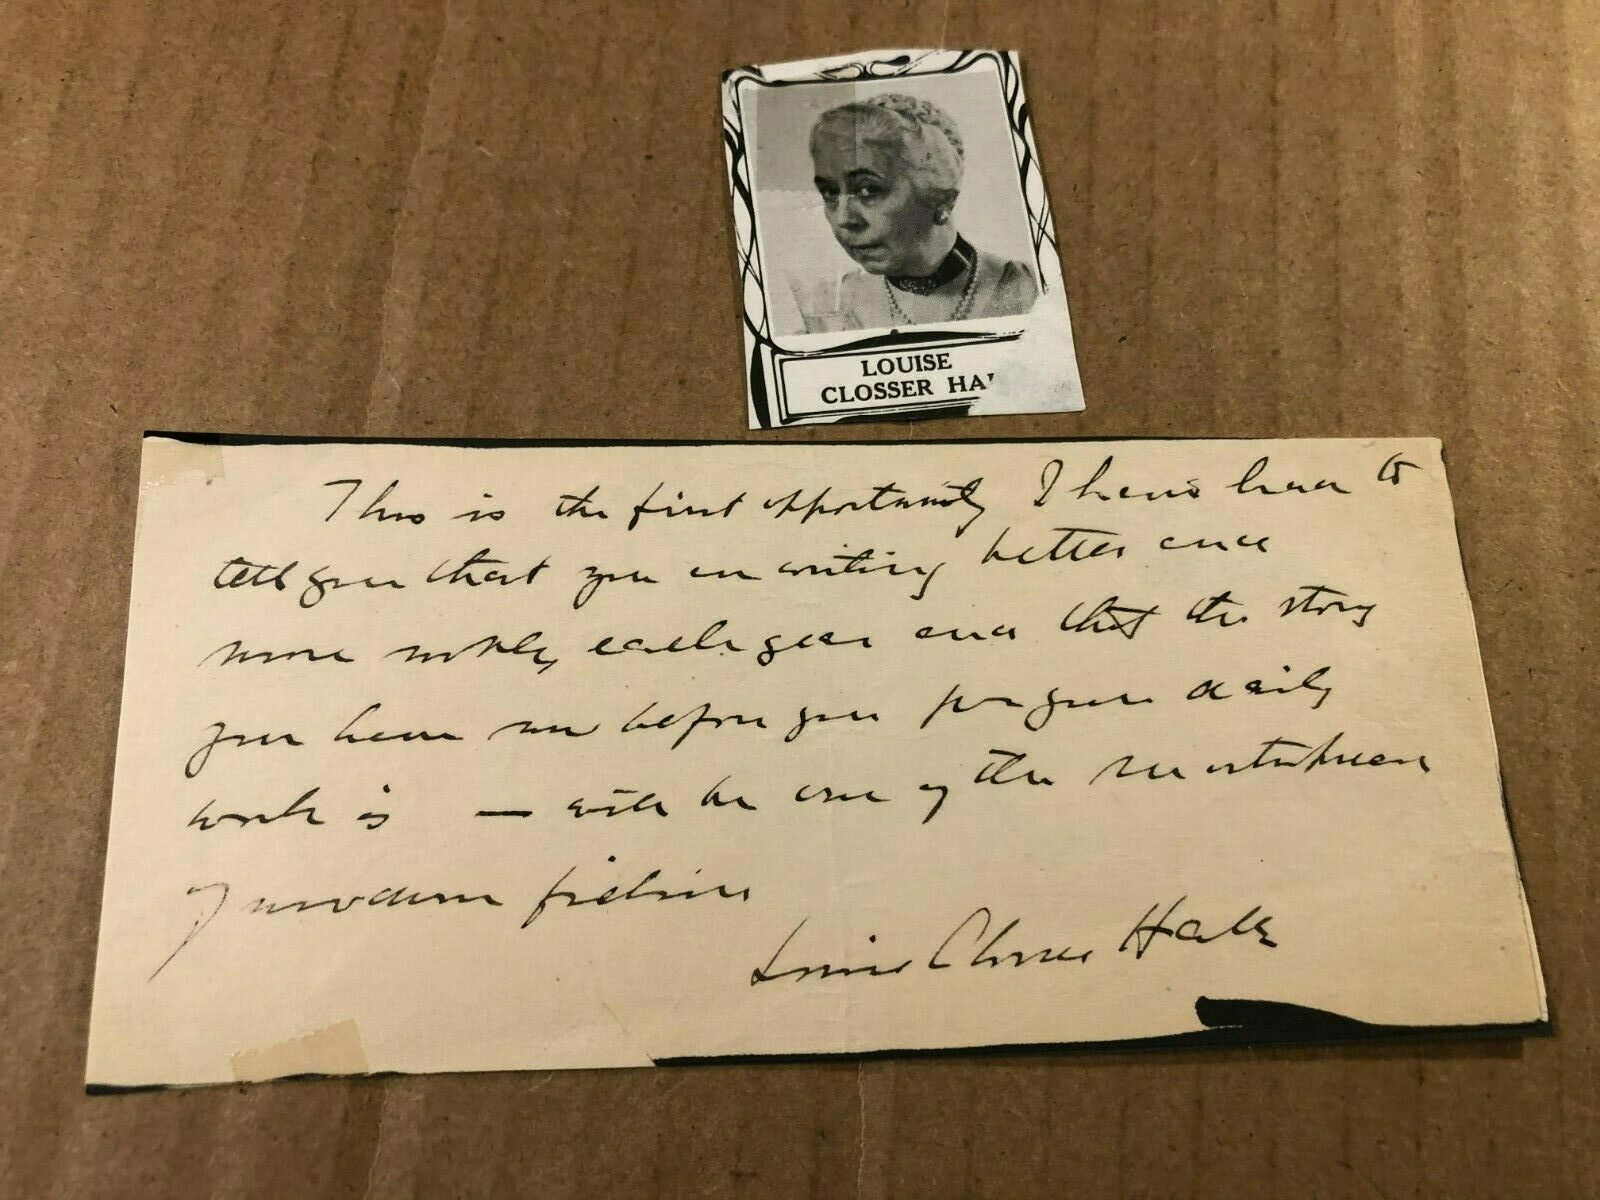 LOUISE
CLOSSER HA
This is the first opportunity I have had to
tell you that you are writing better and
more nobly each year and that the story
you have now before you for your daily
work is — will be one of the
of modern fiction
Louise Closser Hale